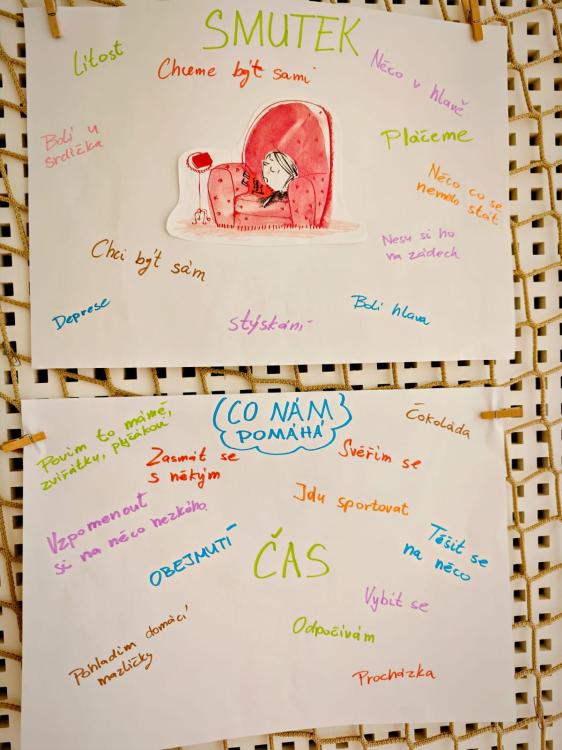 SMUTEK
Lítost
Chceme být sami
Něco v hlavě
Bolí u
srdíčka
Pláčeme
Něco co se
nemělo stát
Nesu si ho
na zádech
Chci být sám
Deprese
stýskání
Bolí hlava
CO NÁM
POMÁHÁ
Povím to mámě,
zvířátky, plyšákou
Zasmát se
s někým
Svěřím se
Čokoláda
Vzpomenout
si na něco hezkého.
Jdu sportovat
OBEJMUTÍ
ČAS
Těšit se
na něco
Vybít se
Odpočívám
Pohladím domácí
mazlíčky
Procházka